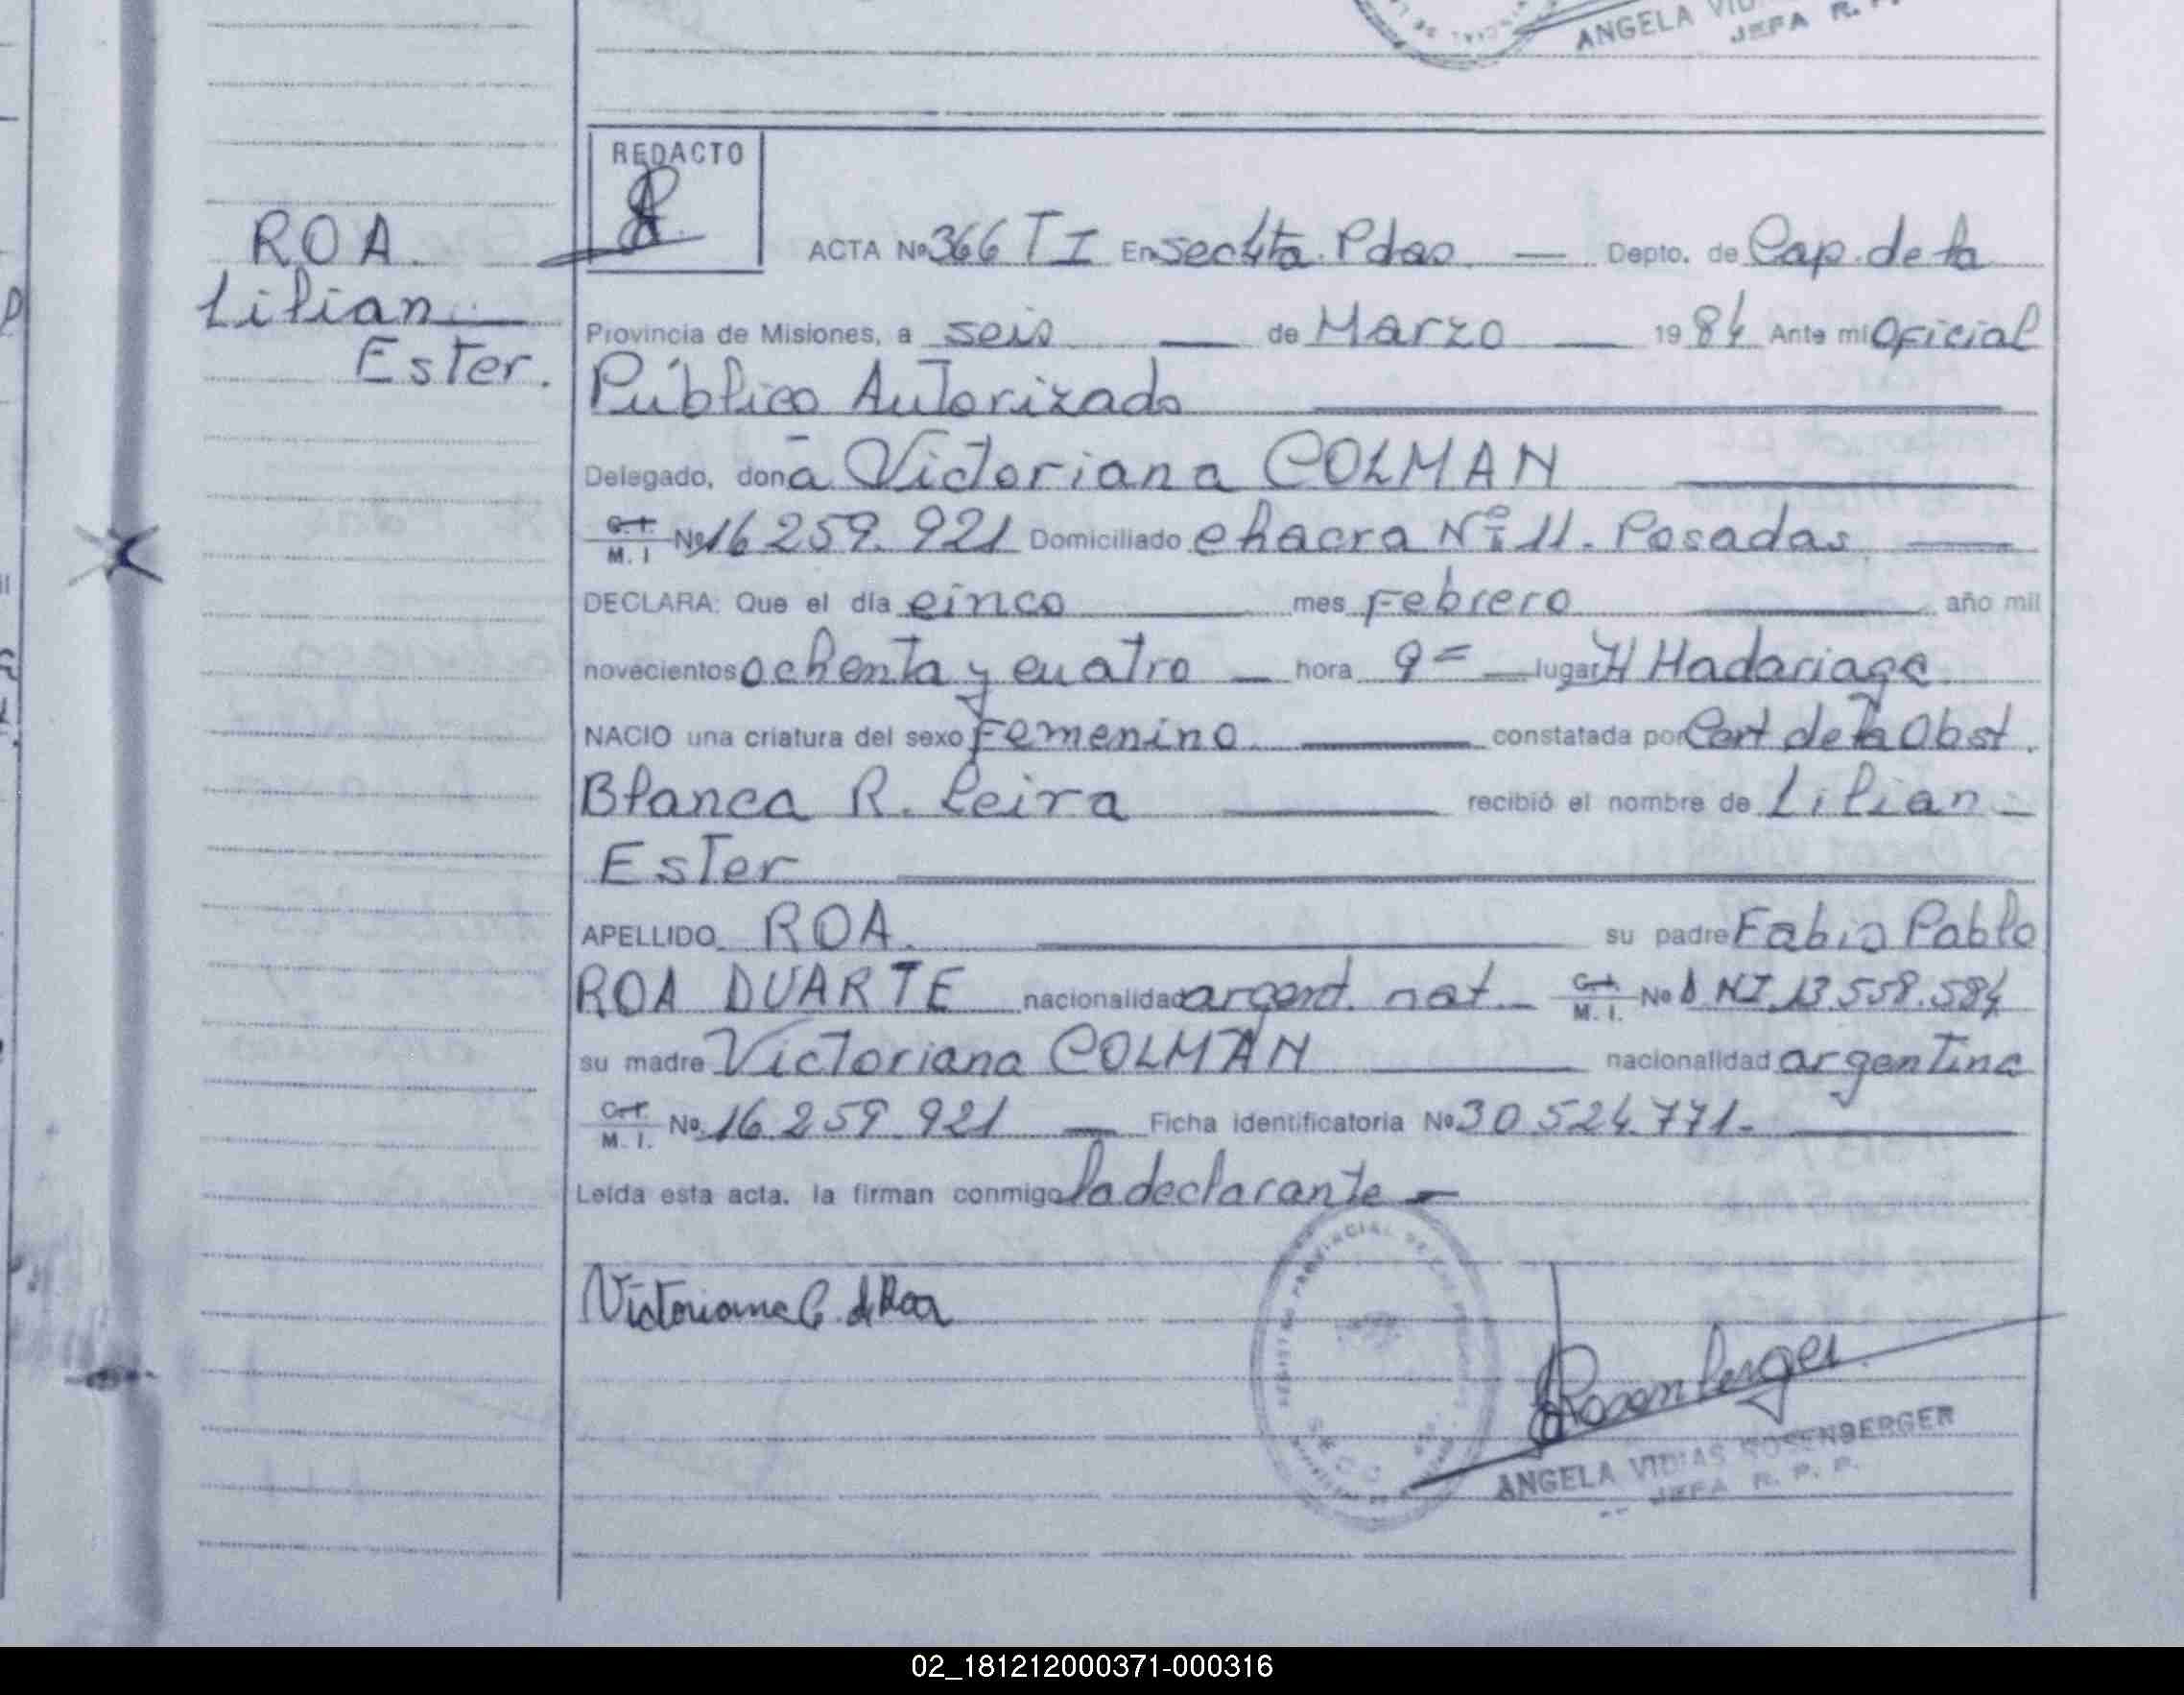 ANGELA VID
JEFA R. P.
REDACTO
ROA.
Lilian
Ester.
ACTA Nº 366 T I En Sec 4ta. Pdas. — Depto. de Cap. de la
Provincia de Misiones, a seis — de Marzo — 1984 Ante mi Oficial
Público Autorizado
Delegado, doña Victoriana COLMAN
C.I. M. I Nº 16 259. 921 Domiciliado chacra Nº 11. Posadas
DECLARA: Que el día cinco mes Febrero año mil
novecientos ochenta y cuatro — hora 9= — lugar H Madariaga
NACIO una criatura del sexo Femenino constatada por Cert de la Obst.
Blanca R. Leira recibió el nombre de Lilian
Ester
APELLIDO ROA. su padre Fabio Pablo
ROA DUARTE nacionalidad argent. nat. C.I. M. I. Nº D NI 13.558.584
su madre Victoriana COLMAN nacionalidad argentina
C.I. M. I. Nº 16.259.921 — Ficha identificatoria Nº 30.524.771.
Leída esta acta, la firman conmigo la declarante —
Victoriana C. de Roa
Rosenberger
ANGELA VIDIAS ROSENBERGER
JEFA R. P. P.
02_181212000371-000316